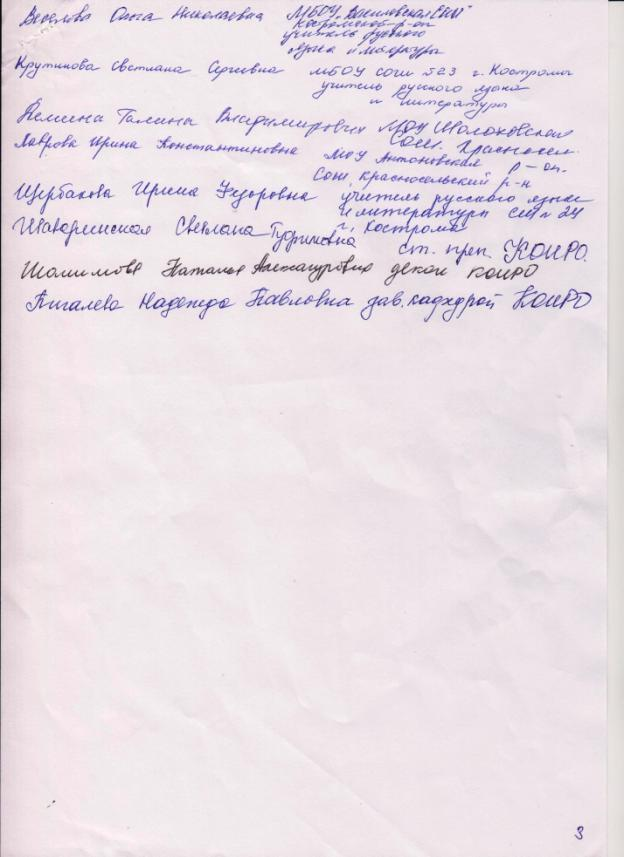 Веселова Ольга Николаевна МБОУ "Василевская СОШ"
Костромской р-он
учитель русского
языка и литературы
Крутикова Светлана Сергеевна МБОУ СОШ №23 г. Костромы
учитель русского языка
и литературы
Галина Владимировна МОУ Шолоховская
СОШ. Красносел.
Лаврова Ирина Константиновна МОУ Антоновская р-он.
СОШ Красносельский р-н
Щербакова Ирина Федоровна учитель русского языка
и литературы СОШ № 24
г. Кострома
Светлана ст. преп. КОИРО.
Наталья Александровна декан КОИРО
Пигалева Надежда Павловна зав. кафедрой КОИРО
3